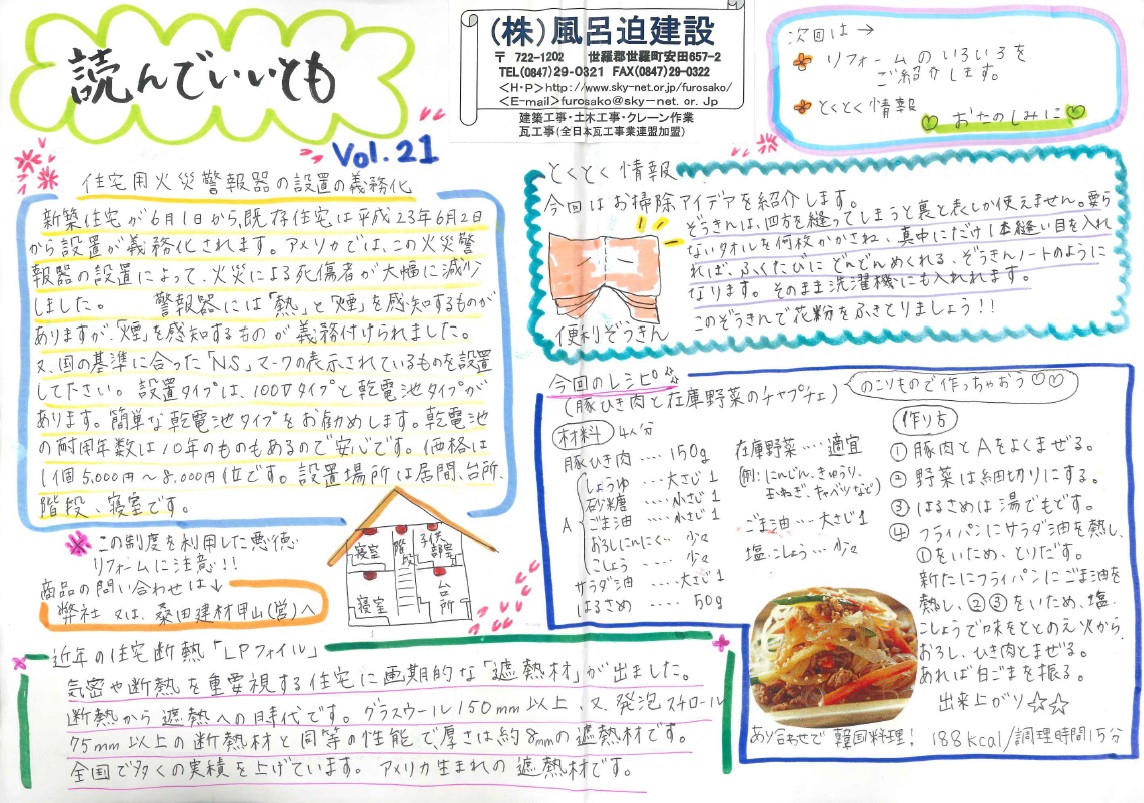 読んでいいとも
Vol.21
(株)風呂迫建設
〒 722-1202 世羅郡世羅町安田657-2
TEL(0847)29-0321 FAX(0847)29-0322
<H・P>http://www.sky-net.or.jp/furosako/
<E-mail>furosako@sky-net.or.Jp
建築工事・土木工事・クレーン作業
瓦工事(全日本瓦工事業連盟加盟)
次回は→
リフォームのいろいろを
ご紹介します。
とくとく情報
おたのしみに
住宅用火災警報器の設置の義務化
新築住宅が6月1日から、既存住宅は平成23年6月2日
から設置が義務化されます。アメリカでは、この火災警
報器の設置によって、火災による死傷者が大幅に減少
しました。 警報器には「熱」と「煙」を感知するものが
ありますが、「煙」を感知するものが義務付けられました。
又、国の基準に合った「NS」マークの表示されているものを設置
して下さい。設置タイプは、100Vタイプと乾電池タイプが
あります。簡単な乾電池タイプをお勧めします。乾電池
の耐用年数は10年のものもあるので安心です。価格は
1個5,000円～8,000円位です。設置場所は居間、台所、
階段、寝室です。
※この制度を利用した悪徳
リフォームに注意!!
商品の問い合わせは↓
弊社又は、桑田建材甲山(営)へ
寝室
階段
子供部屋
寝室
台所
とくとく情報
今回はお掃除アイデアを紹介します。
ぞうきんは、四方を縫ってしまうと裏と表しか使えません。要ら
ないタオルを何枚かかさね、真中にだけ1本縫い目を入れ
れば、ふくたびにどんどんめくれる、ぞうきんノートのように
なります。そのまま洗濯機にも入れれます。
このぞうきんで花粉をふきとりましょう!!
便利ぞうきん
今回のレシピ☆
(豚ひき肉と在庫野菜のチャプチェ)
のこりもので作っちゃおう♡♡
材料 4人分
豚ひき肉 ‥‥ 150g
A
しょうゆ ‥‥ 大さじ1
砂糖 ‥‥ 小さじ1
ごま油 ‥‥ 小さじ1
おろしにんにく‥ 少々
こしょう ‥‥ 少々
サラダ油 ‥‥大さじ1
はるさめ ‥‥ 50g
在庫野菜‥‥適宜
(例:にんじん、きゅうり、
玉ねぎ、キャベツなど)
ごま油‥‥大さじ1
塩こしょう‥‥少々
作り方
①豚肉とAをよくまぜる。
②野菜は細切りにする。
③はるさめは湯でもどす。
④フライパンにサラダ油を熱し、
①をいため、とりだす。
新たにフライパンにごま油を
熱し、②③をいため、塩・
こしょうで味をととのえ火から
おろし、ひき肉とまぜる。
あれば白ごまを振る。
出来上がり☆☆
あり合わせで韓国料理! 188kcal/調理時間15分
近年の住宅断熱「LPフォイル」
気密や断熱を重要視する住宅に画期的な「遮熱材」が出ました。
断熱から遮熱への時代です。グラスウール150mm以上、又、発泡スチロール
75mm以上の断熱材と同等の性能で厚さは約8mmの遮熱材です。
全国で多くの実績を上げています。アメリカ生まれの遮熱材です。